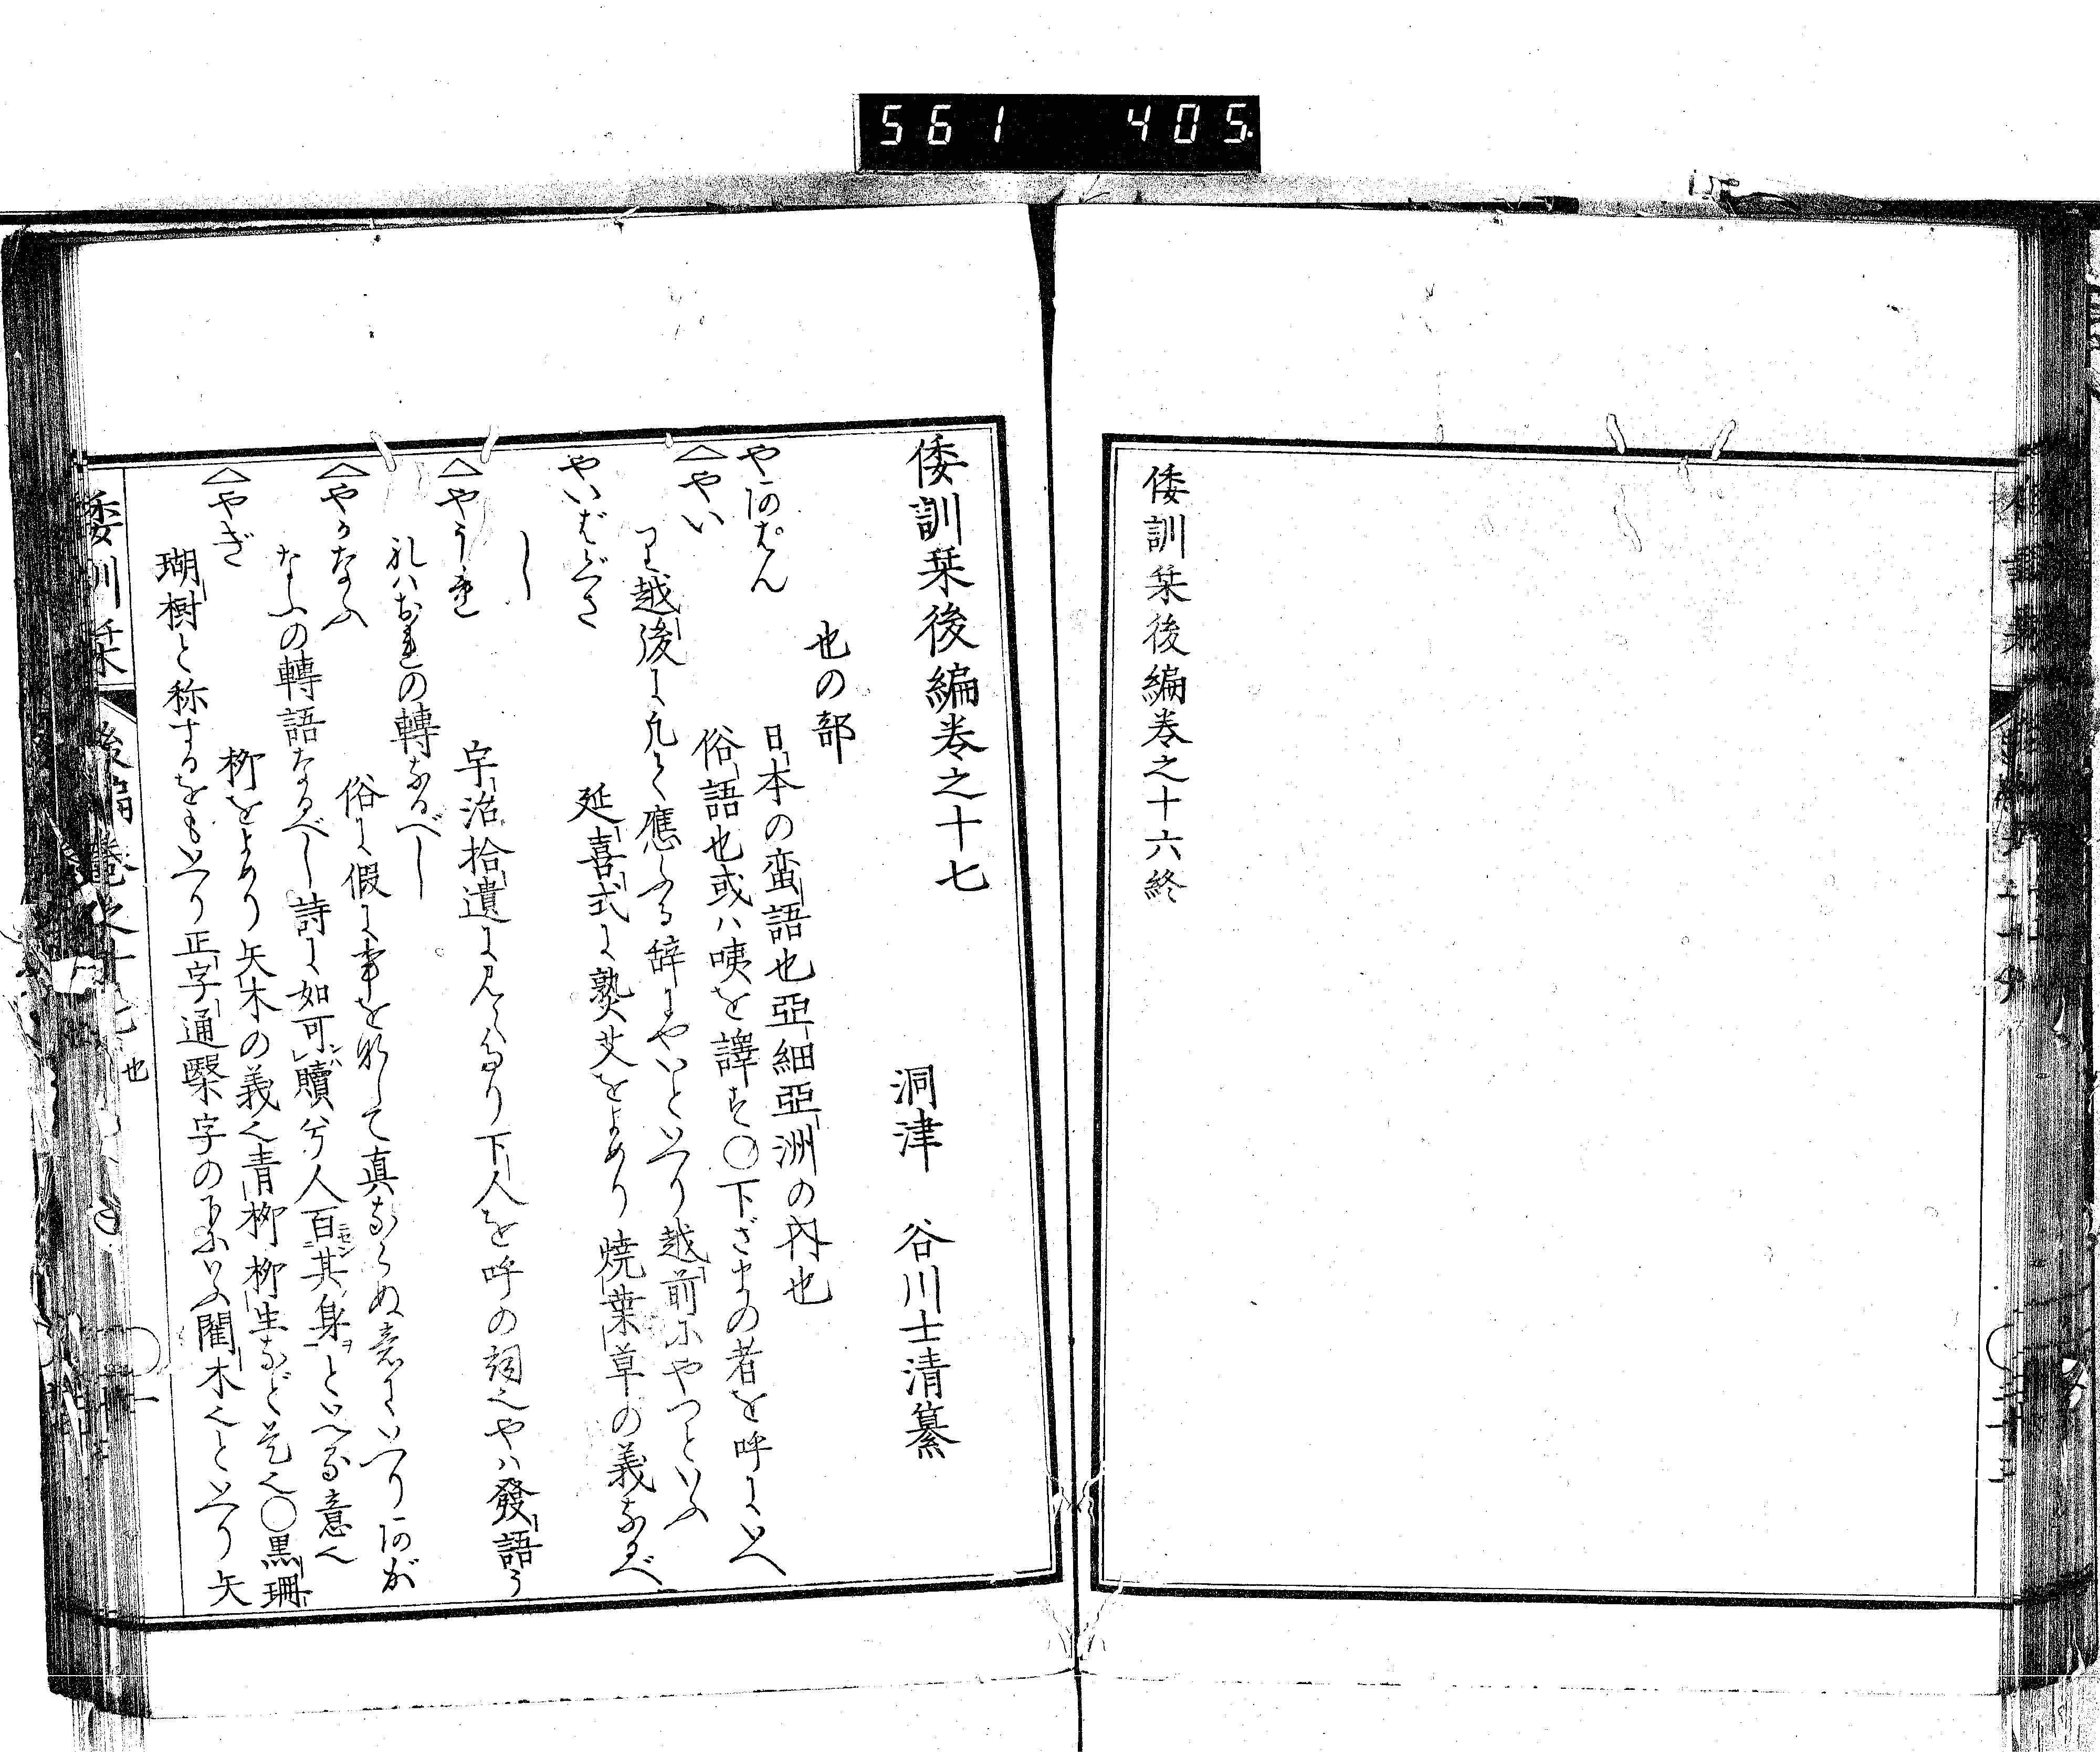 561 405
倭訓栞後編巻之十六終
倭訓栞後編巻之十七
洞津 谷川士清纂
也の部
やあぱん 日本の蛮語也亞細亞洲の内也
△やい 俗語也或ハ咦を譯す○下ざまの者を呼にいへ
り越後に凡て應ふる辞にやいといへり越前にやつといふ
やいばぐさ 延喜式に熟艾をよめり焼葉草の義なるべ
し
△やうれ 宇治拾遺に見えたり下人を呼の詞也やハ發語う
れハおれの轉なるべし
△やうなふ 俗に假に事を形して真ならぬ意にいへりあが
なふの轉語なるべし詩に如可贖兮人百其身といへる意也
△やぎ 柳をよめり矢木の義也青柳柳生など是也○黒珊
瑚樹と称するをもいへり正字通櫱字の下にいふ闍木也といへり矢
倭訓栞 後編巻之十七 也 ○一